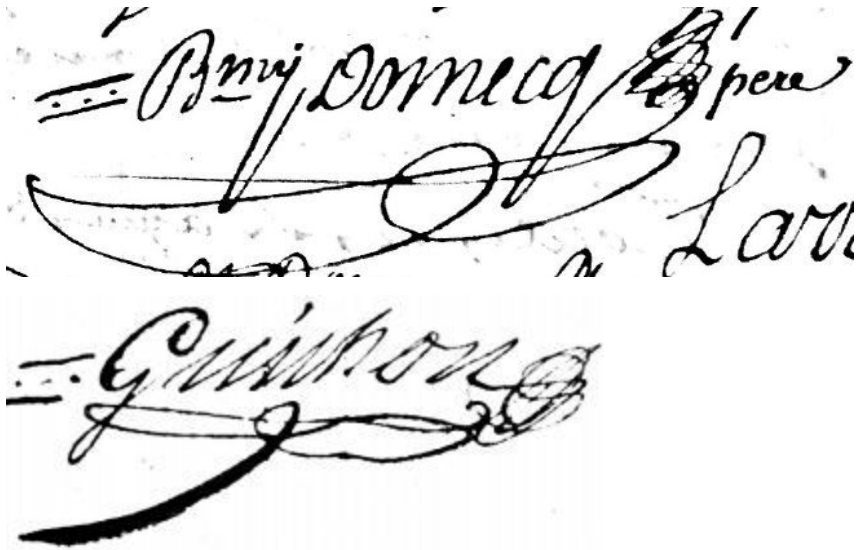 Bmy Domecq pere
Laro
Guichon